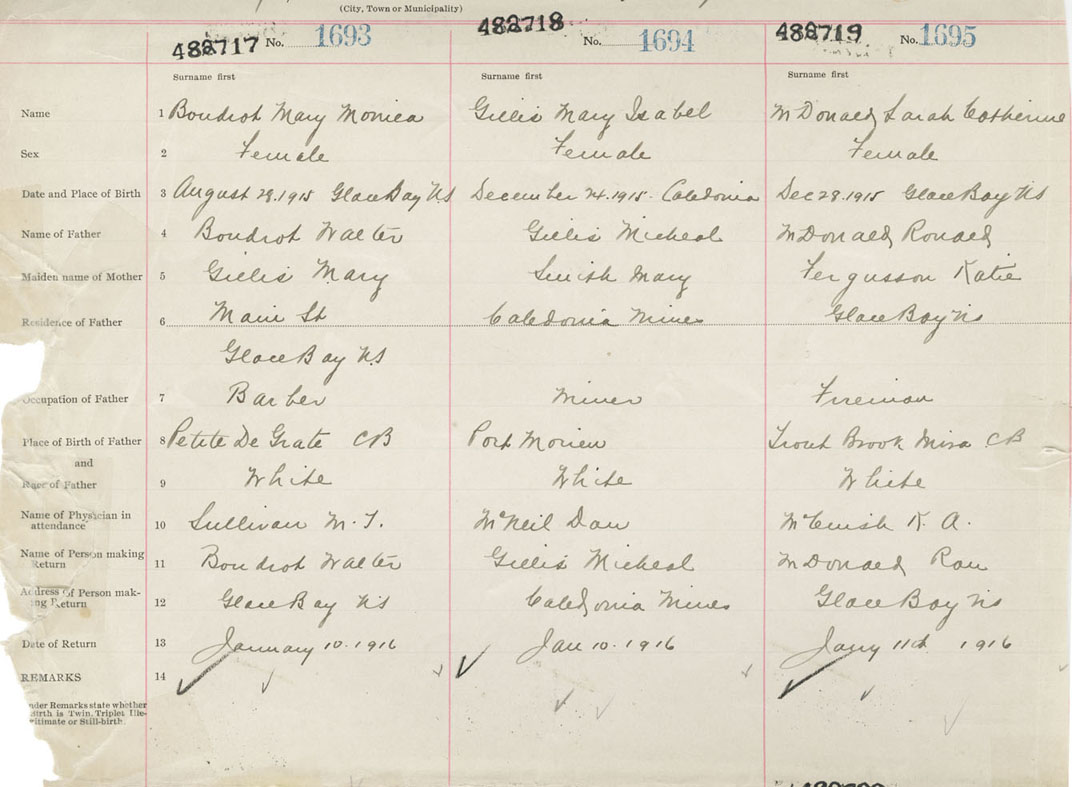 (City, Town or Municipality)
482717 No. 1693 482718 No. 1694 482719 No. 1695
Surname first Surname first Surname first
Name 1 Boudrot Mary Monica Gillis Mary Isabel McDonald Sarah Catherine
Sex 2 Female Female Female
Date and Place of Birth 3 August 29.1915 Glace Bay NS December 24.1915. Caledonia Dec 28.1915 Glace Bay NS
Name of Father 4 Boudrot Walter Gillis Micheal McDonald Ronald
Maiden name of Mother 5 Gillis Mary Smith Mary Fergusson Katie
Residence of Father 6 Main St Caledonia Mines Glace Bay NS
Glace Bay NS
Occupation of Father 7 Barber Miner Fireman
Place of Birth of Father 8 Petite De Grate CB Port Morien Trout Brook Mira CB
and
Race of Father 9 White White White
Name of Physician in
attendance 10 Sullivan M. T. McNeil Dan McCuish K. A.
Name of Person making
Return 11 Boudrot Walter Gillis Micheal McDonald Ron
Address of Person mak-
ing Return 12 Glace Bay NS Caledonia Mines Glace Bay NS
Date of Return 13 January 10.1916 Jan 10.1916 Jany 11th 1916
REMARKS 14
nder Remarks state whether
Birth is Twin, Triplet Ille-
gitimate or Still-birth.